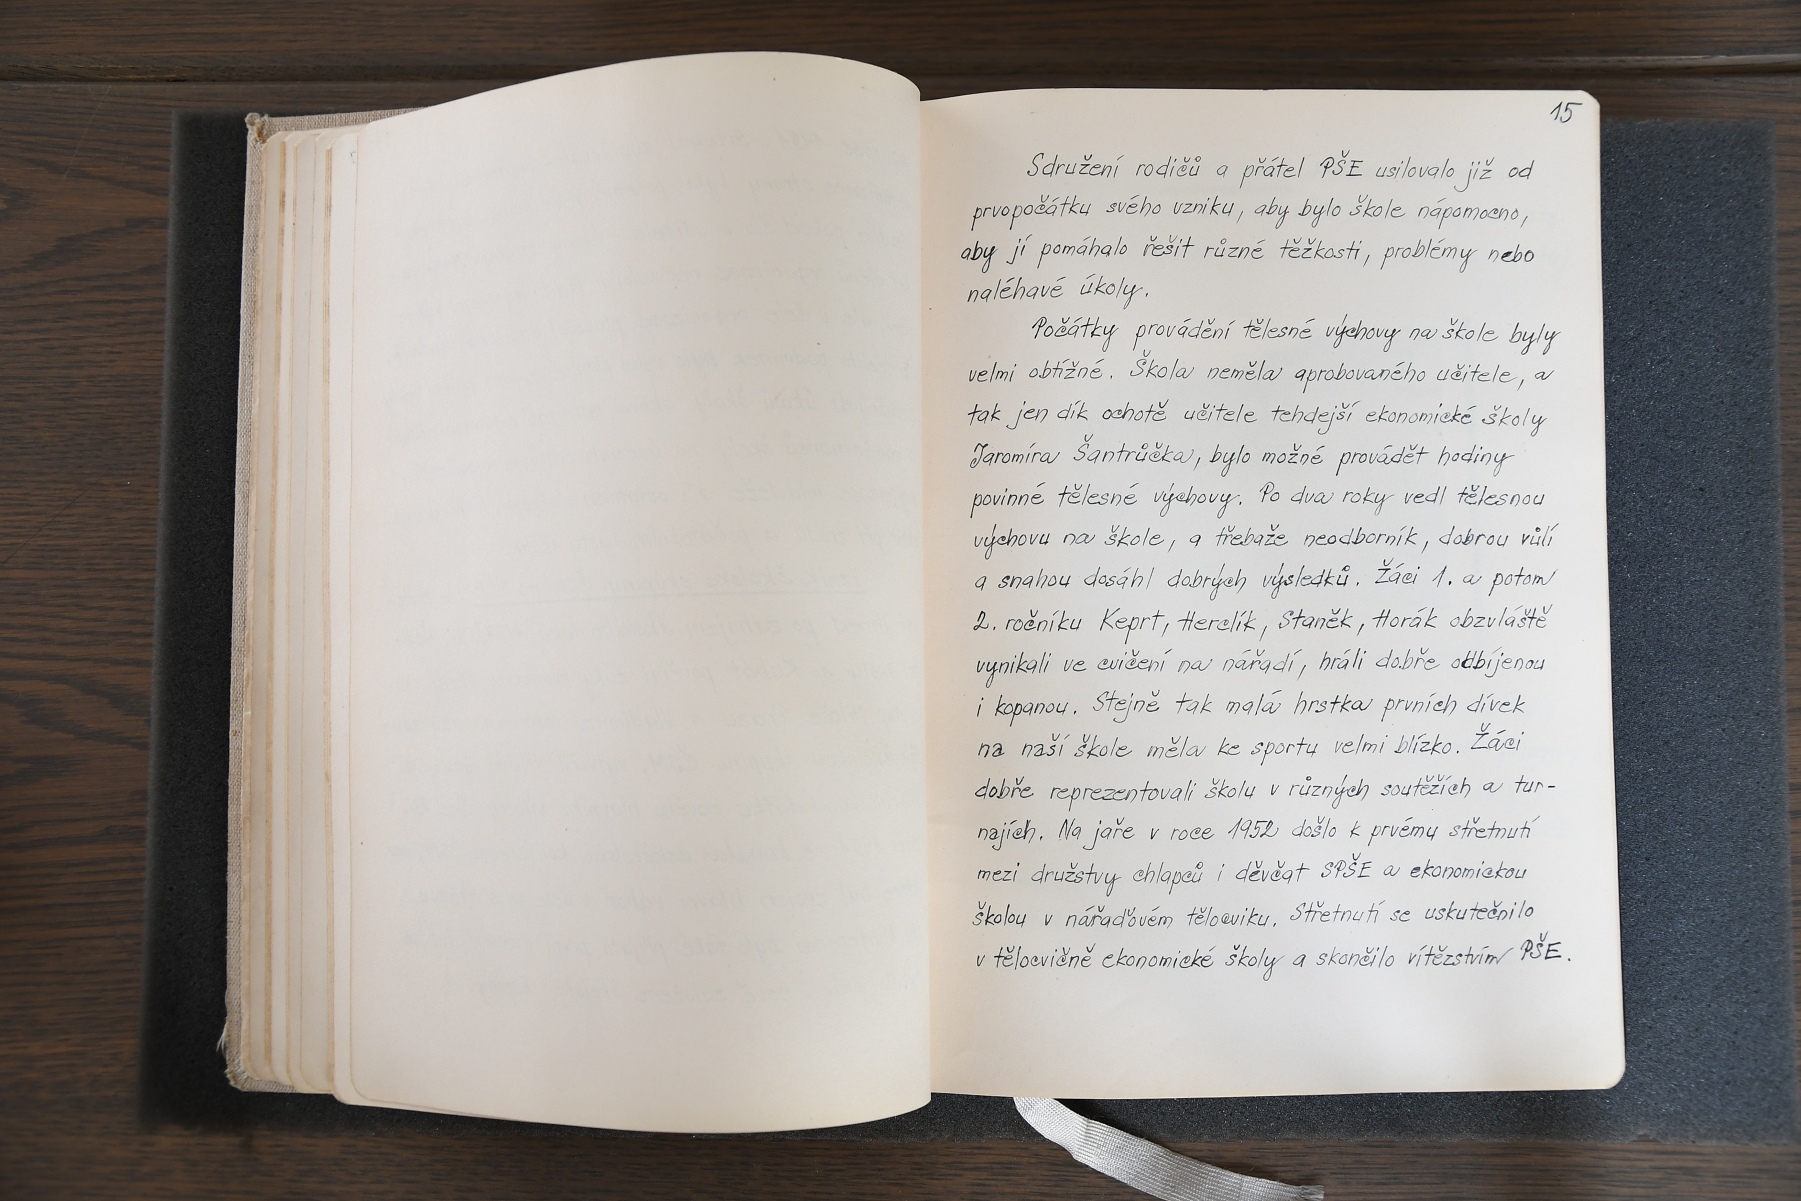 15
Sdružení rodičů a přátel PŠE usilovalo již od
prvopočátku svého vzniku, aby bylo škole nápomocno,
aby jí pomáhalo řešit různé těžkosti, problémy nebo
naléhavé úkoly.
Počátky provádění tělesné výchovy na škole byly
velmi obtížné. Škola neměla aprobovaného učitele, a
tak jen dík ochotě učitele tehdejší ekonomické školy
Jaromíra Šantrůčka, bylo možné provádět hodiny
povinné tělesné výchovy. Po dva roky vedl tělesnou
výchovu na škole, a třebaže neodborník, dobrou vůlí
a snahou dosáhl dobrých výsledků. Žáci 1. a potom
2. ročníku Keprt, Herclík, Staněk, Horák obzvláště
vynikali ve cvičení na nářadí, hráli dobře odbíjenou
i kopanou. Stejně tak malá hrstka prvních dívek
na naší škole měla ke sportu velmi blízko. Žáci
dobře reprezentovali školu v různých soutěžích a tur-
najích. Na jaře v roce 1952 došlo k prvému střetnutí
mezi družstvy chlapců i děvčat SPŠE a ekonomickou
školou v nářaďovém tělocviku. Střetnutí se uskutečnilo
v tělocvičně ekonomické školy a skončilo vítězstvím PŠE.